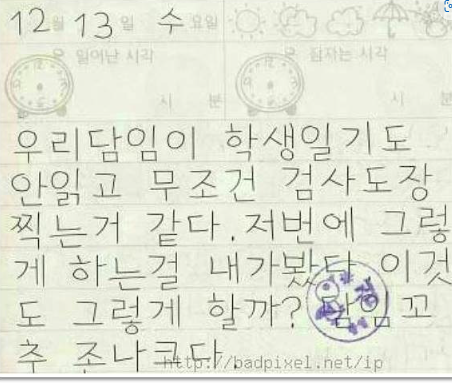 12월 13일 수요일
일어난 시각 잠자는 시각
시 분 시
우리담임이 학생일기도
안읽고 무조건 검사도장
찍는거 같다.저번에 그렇
게 하는걸 내가봤다 이것
도 그렇게 할까? 담임꼬
추 존나크다.
http://badpixel.net/ip